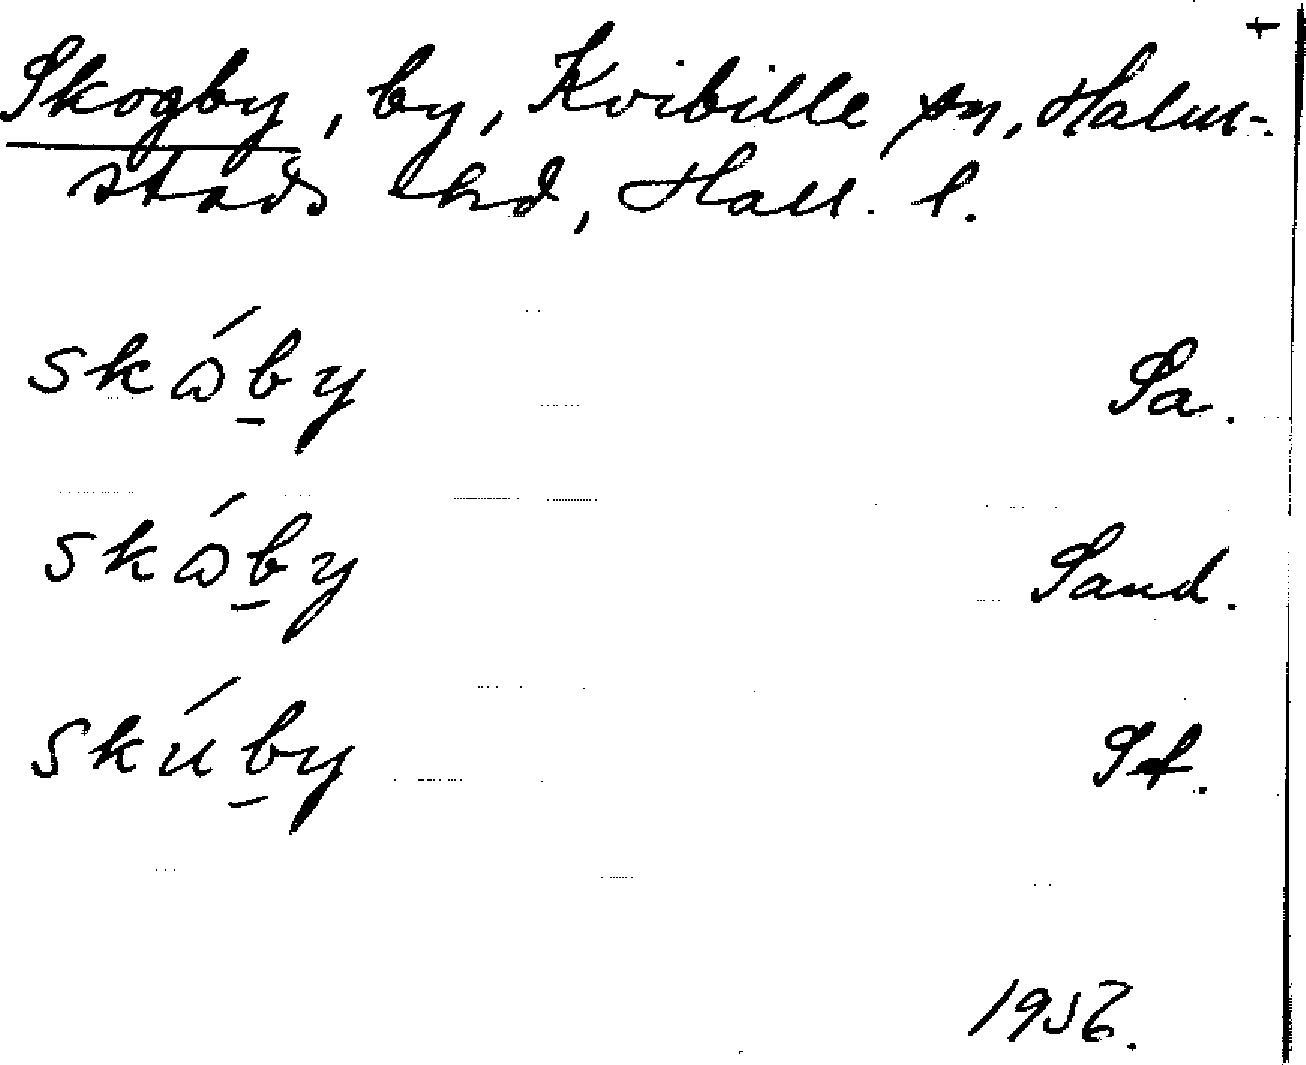 +
Skogby, by, Kvibille sn, Halm-
stads hd, Hall. l.
skɷ́b̲y Sa.
skɷ́b̲y Sand.
skúb̲y Sf.
1956.